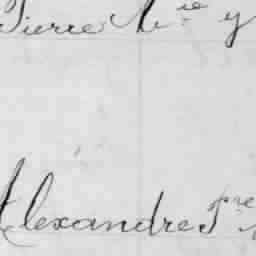 Pierre M ie y
Alexandre J pre